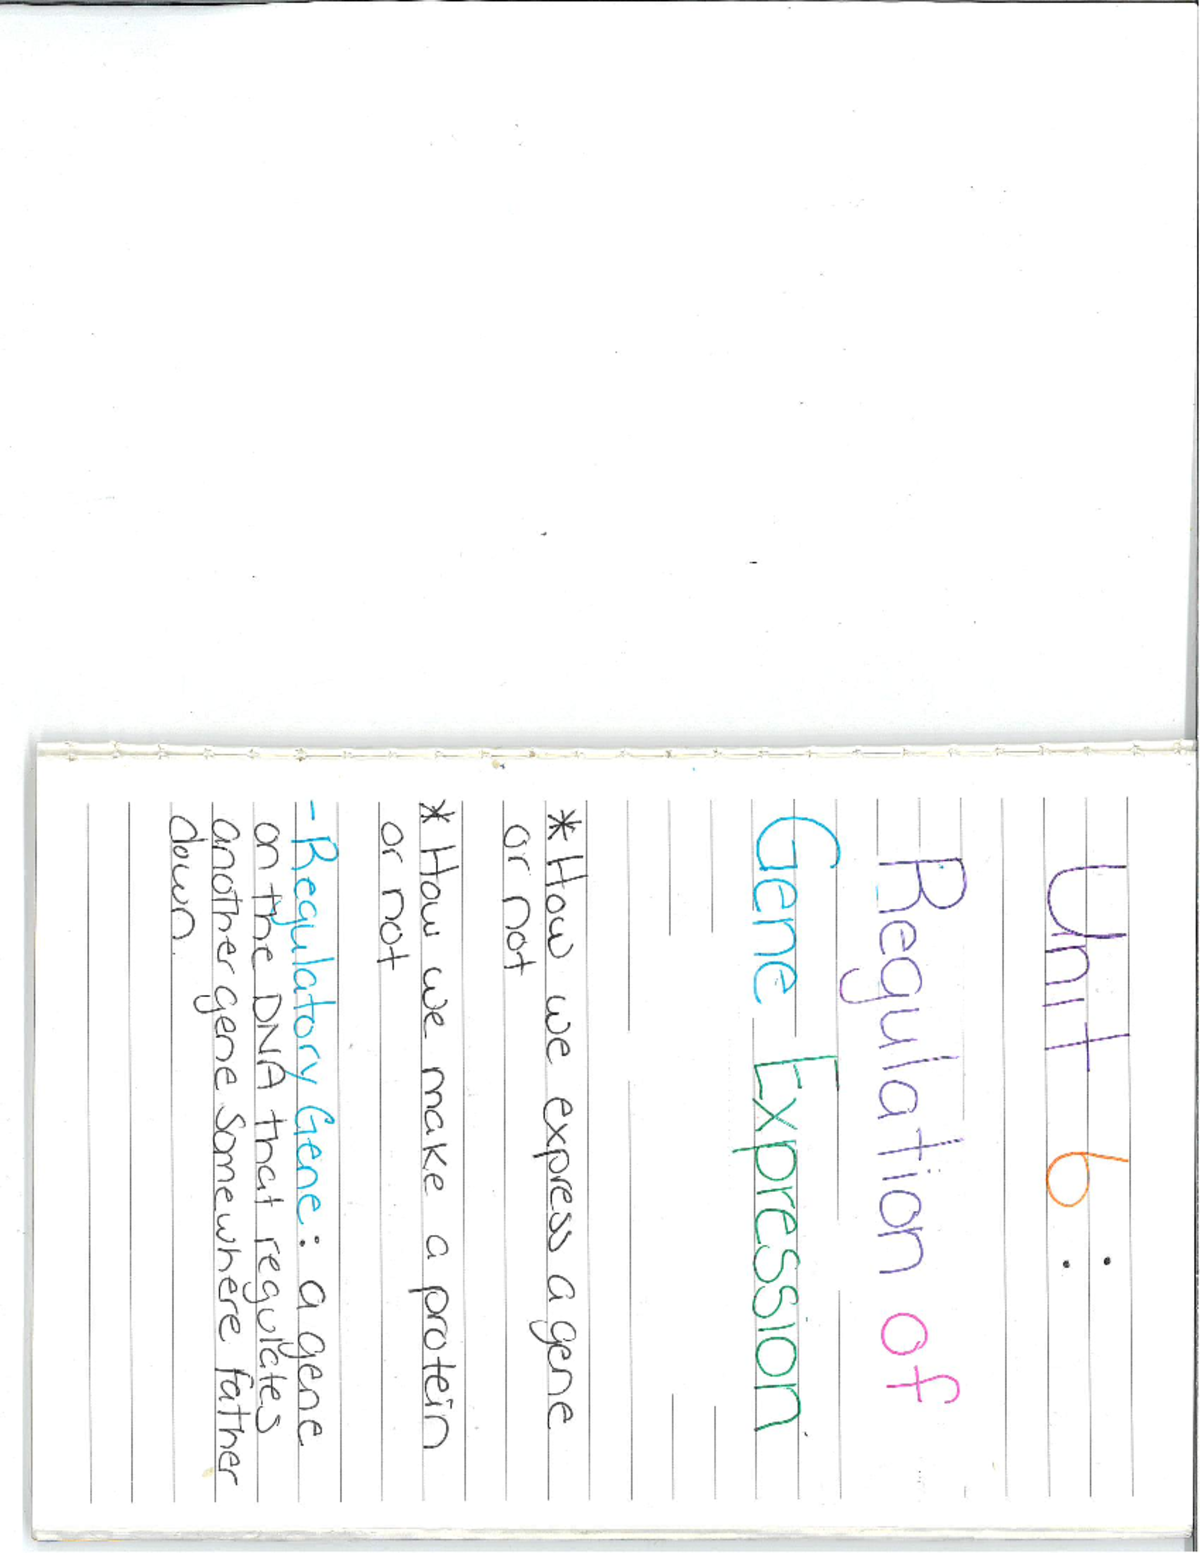 Unit 6:
Regulation of
Gene Expression
* How we express a gene
or not
* How we make a protein
or not
- Regulatory Gene: a gene
on the DNA that regulates
another gene somewhere father
down.